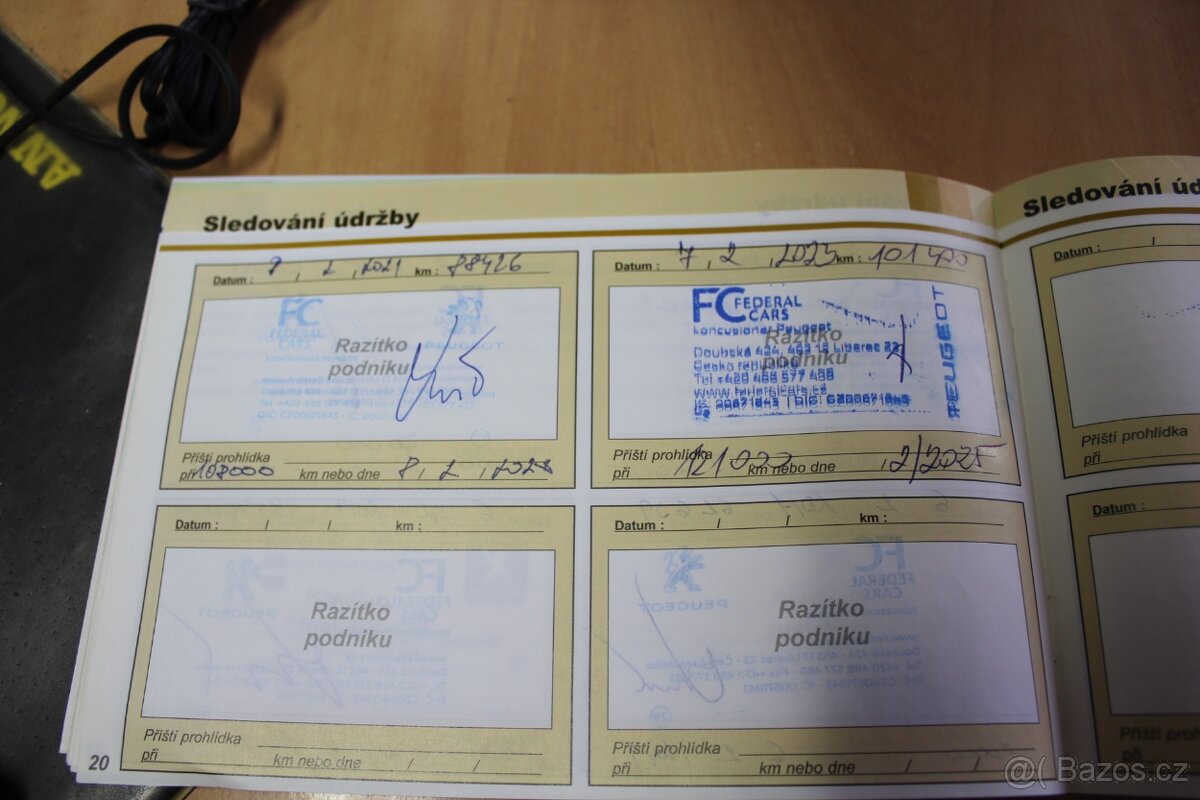 AN
Sledování údržby
Datum : 8 , 2 , 2021 km : 88426
FC
FEDERAL
CARS
PEUGEOT
Razítko
podniku
Příští prohlídka
při 108000 km nebo dne 8 , 2 , 2023
Datum : 7 , 2 , 2023 km : 101
FC FEDERAL
CARS
koncesionář Peugeot
Razítko
podniku
Doubská 424, 463 12 Liberec 23
Česká republika
Tel +420 488 577 488
www.federalcars.cz
IČ: 00671843 | DIČ: CZ00671843
PEUGEOT
Příští prohlídka
při 121 000 km nebo dne / 2/2025
Datum : / / km :
Razítko
podniku
Příští prohlídka
při km nebo dne / /
Datum : / / km :
Razítko
podniku
Příští prohlídka
při km nebo dne / /
20
Sledování úd
Datum : /
Příští prohlídka
při
Datum :
Příští proh
při
@( Bazos.cz